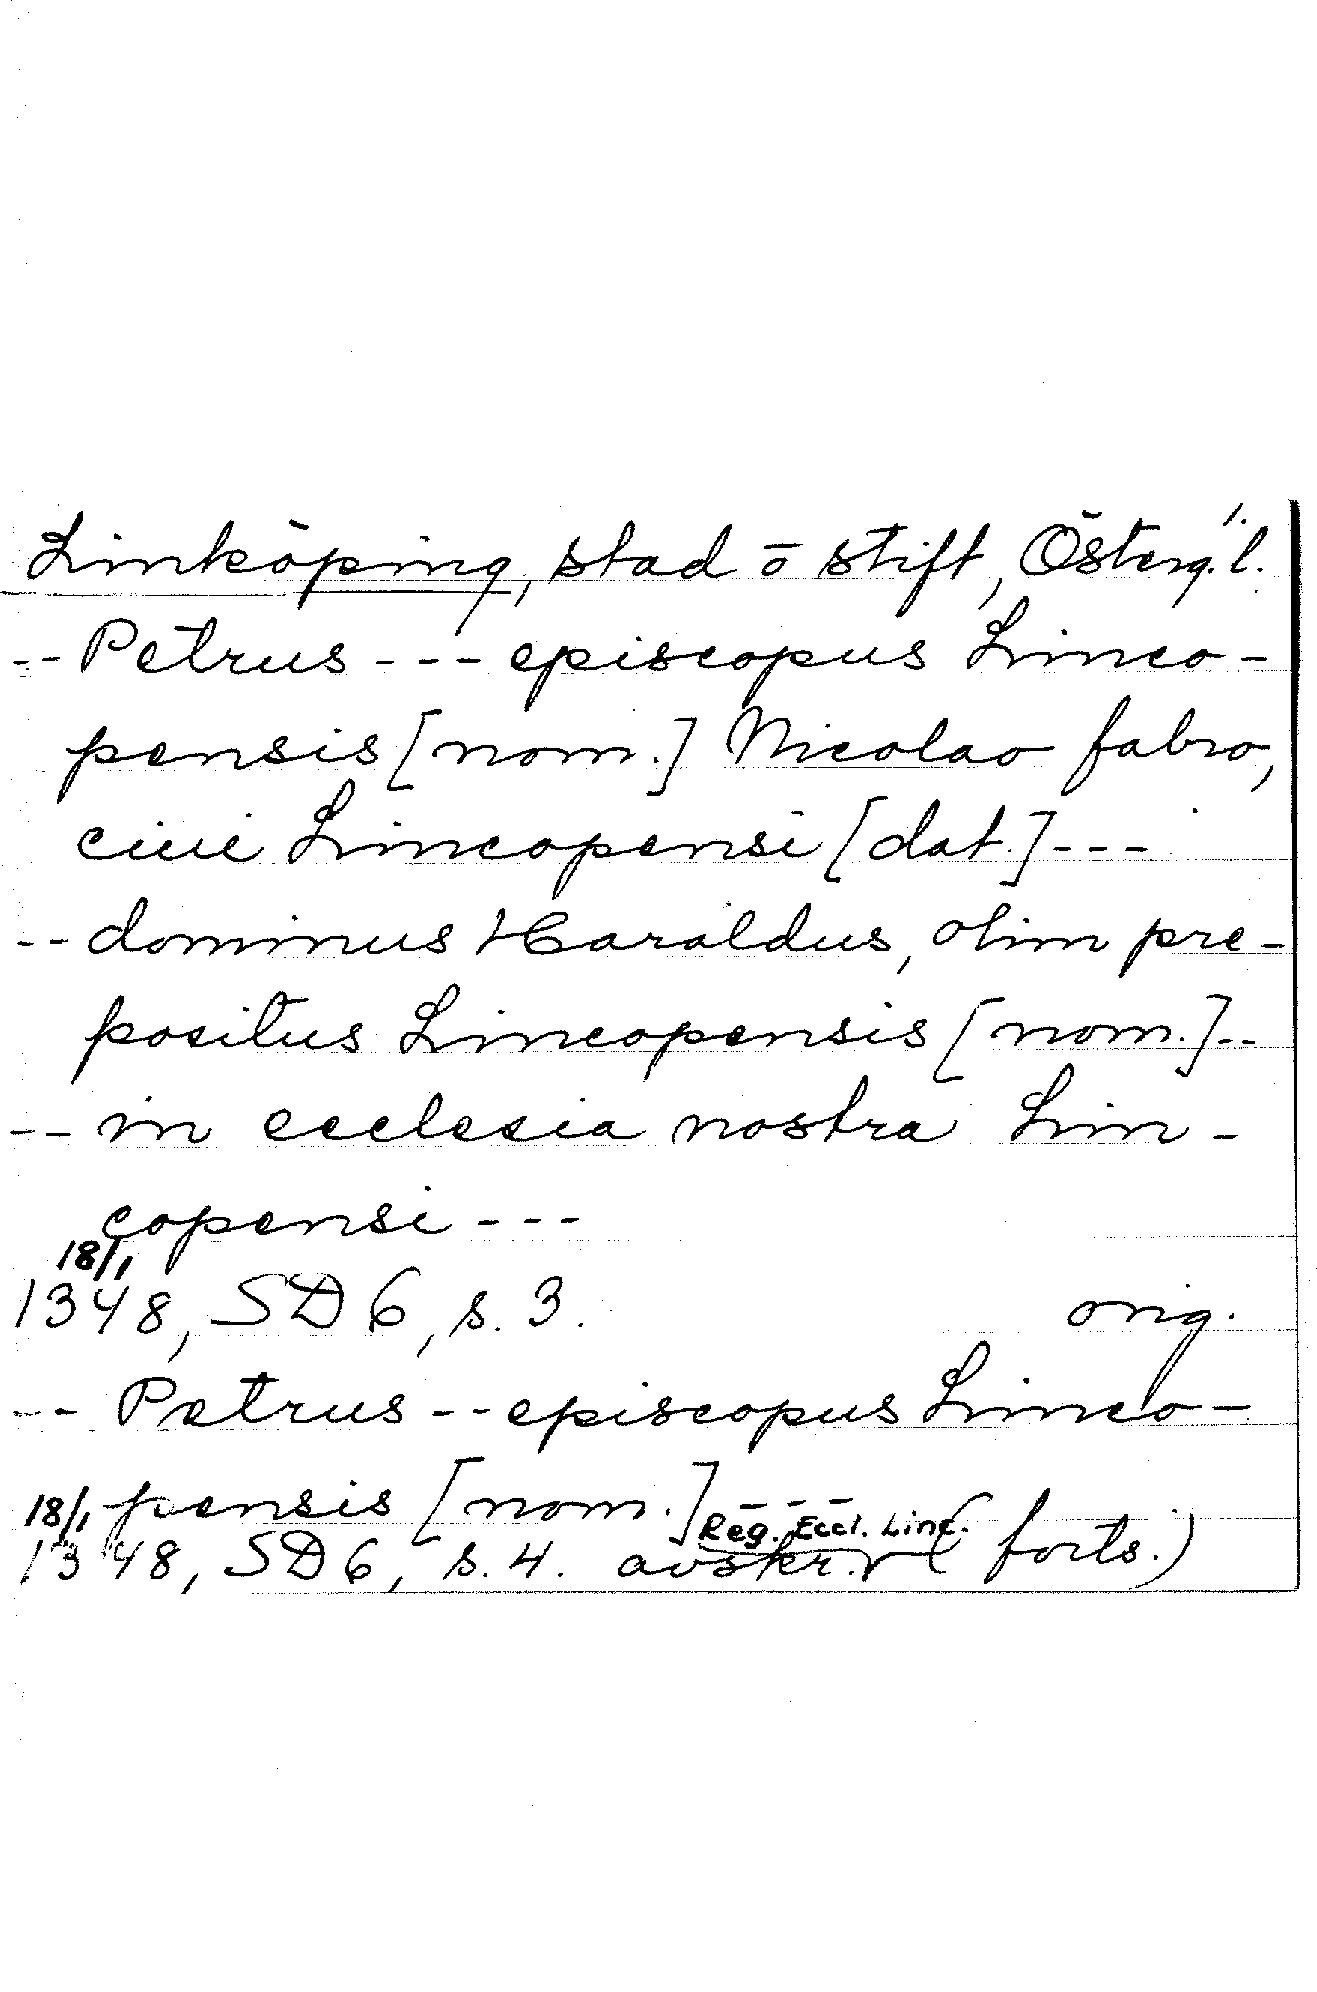 1.
Linköping, stad o stift, Österg.l.
-- Petrus --- episcopus Linco-
pensis [nom.] Nicolao fabro,
ciui Lincopensi [dat.] ---
-- dominus Haraldus, olim pre-
positus Lincopensis [nom.] --
-- in ecclesia nostra Lin-
copensi ---
18/1
1348, SD 6, s. 3. orig.
-- Petrus -- episcopus Linco-
pensis [nom.] ---
18/1 Reg. Eccl. Linc.
1348, SD 6, s. 4. avskr. (forts.)